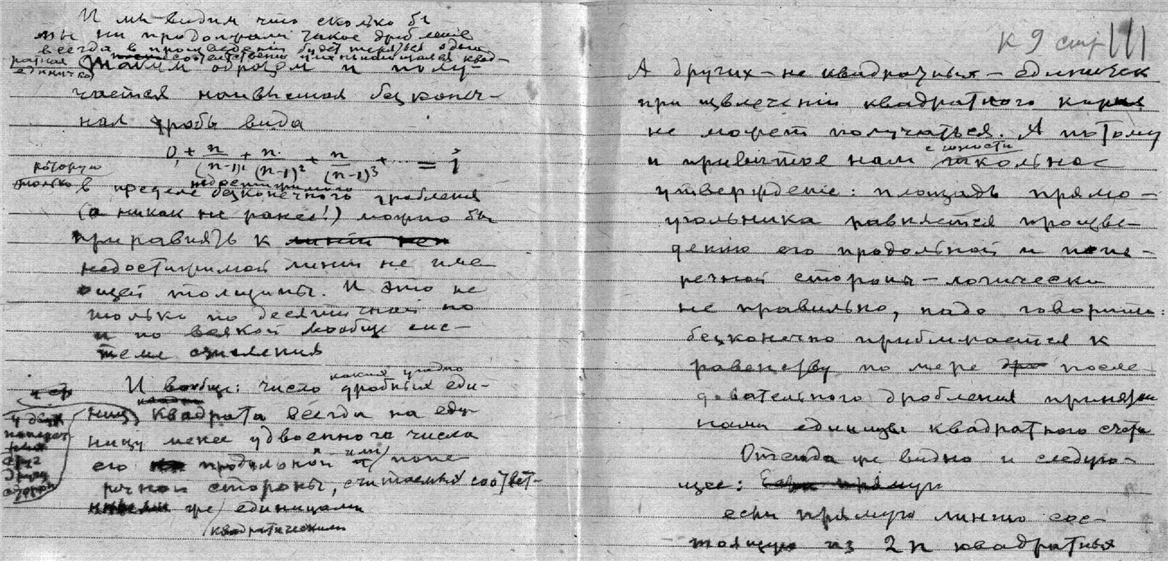 И мы видим что сколько бы
мы ни продолжали такое дробление
всегда в произведении будет теряться одна
квад-
ратная единичка
Таким образом и полу-
чается наивысшая безконеч-
ная дробь вида
0, + n/(n-1)¹ + n/(n-1)² + n/(n-1)³ + ... = 1
которую
только в пределе недостижимого безконечного дробления
(а никак не ранее!) можно бы
приравнять к
недостижимой линии не име-
ющей толщины. И это не
только по десятичной но
и по всякой вообще сис-
теме счисления
И вообще: число каких угодно дробных еди-
ниц квадрата всегда на еди-
ницу менее удвоенного числа
его продольной и/или попе-
речной стороны, считаемых соответ-
же единицами
квадратическими
у двух
друг
друга
сторон
К 9 стр 111
А других – не квадратных – единичек
при извлечении квадратного корня
не может получаться. А потому
и привычное нам с юности школьное
утверждение: площадь прямо-
угольника равняется произве-
дению его продольной и попе-
речной стороны – логически
не правильно, надо говорить:
безконечно приближается к
равенству по мере после-
довательного дробления принятой
нами единицы квадратного счета
Отсюда же видно и следую-
щее: Если прямую
если прямую линию сос-
тоящую из 2n квадратных